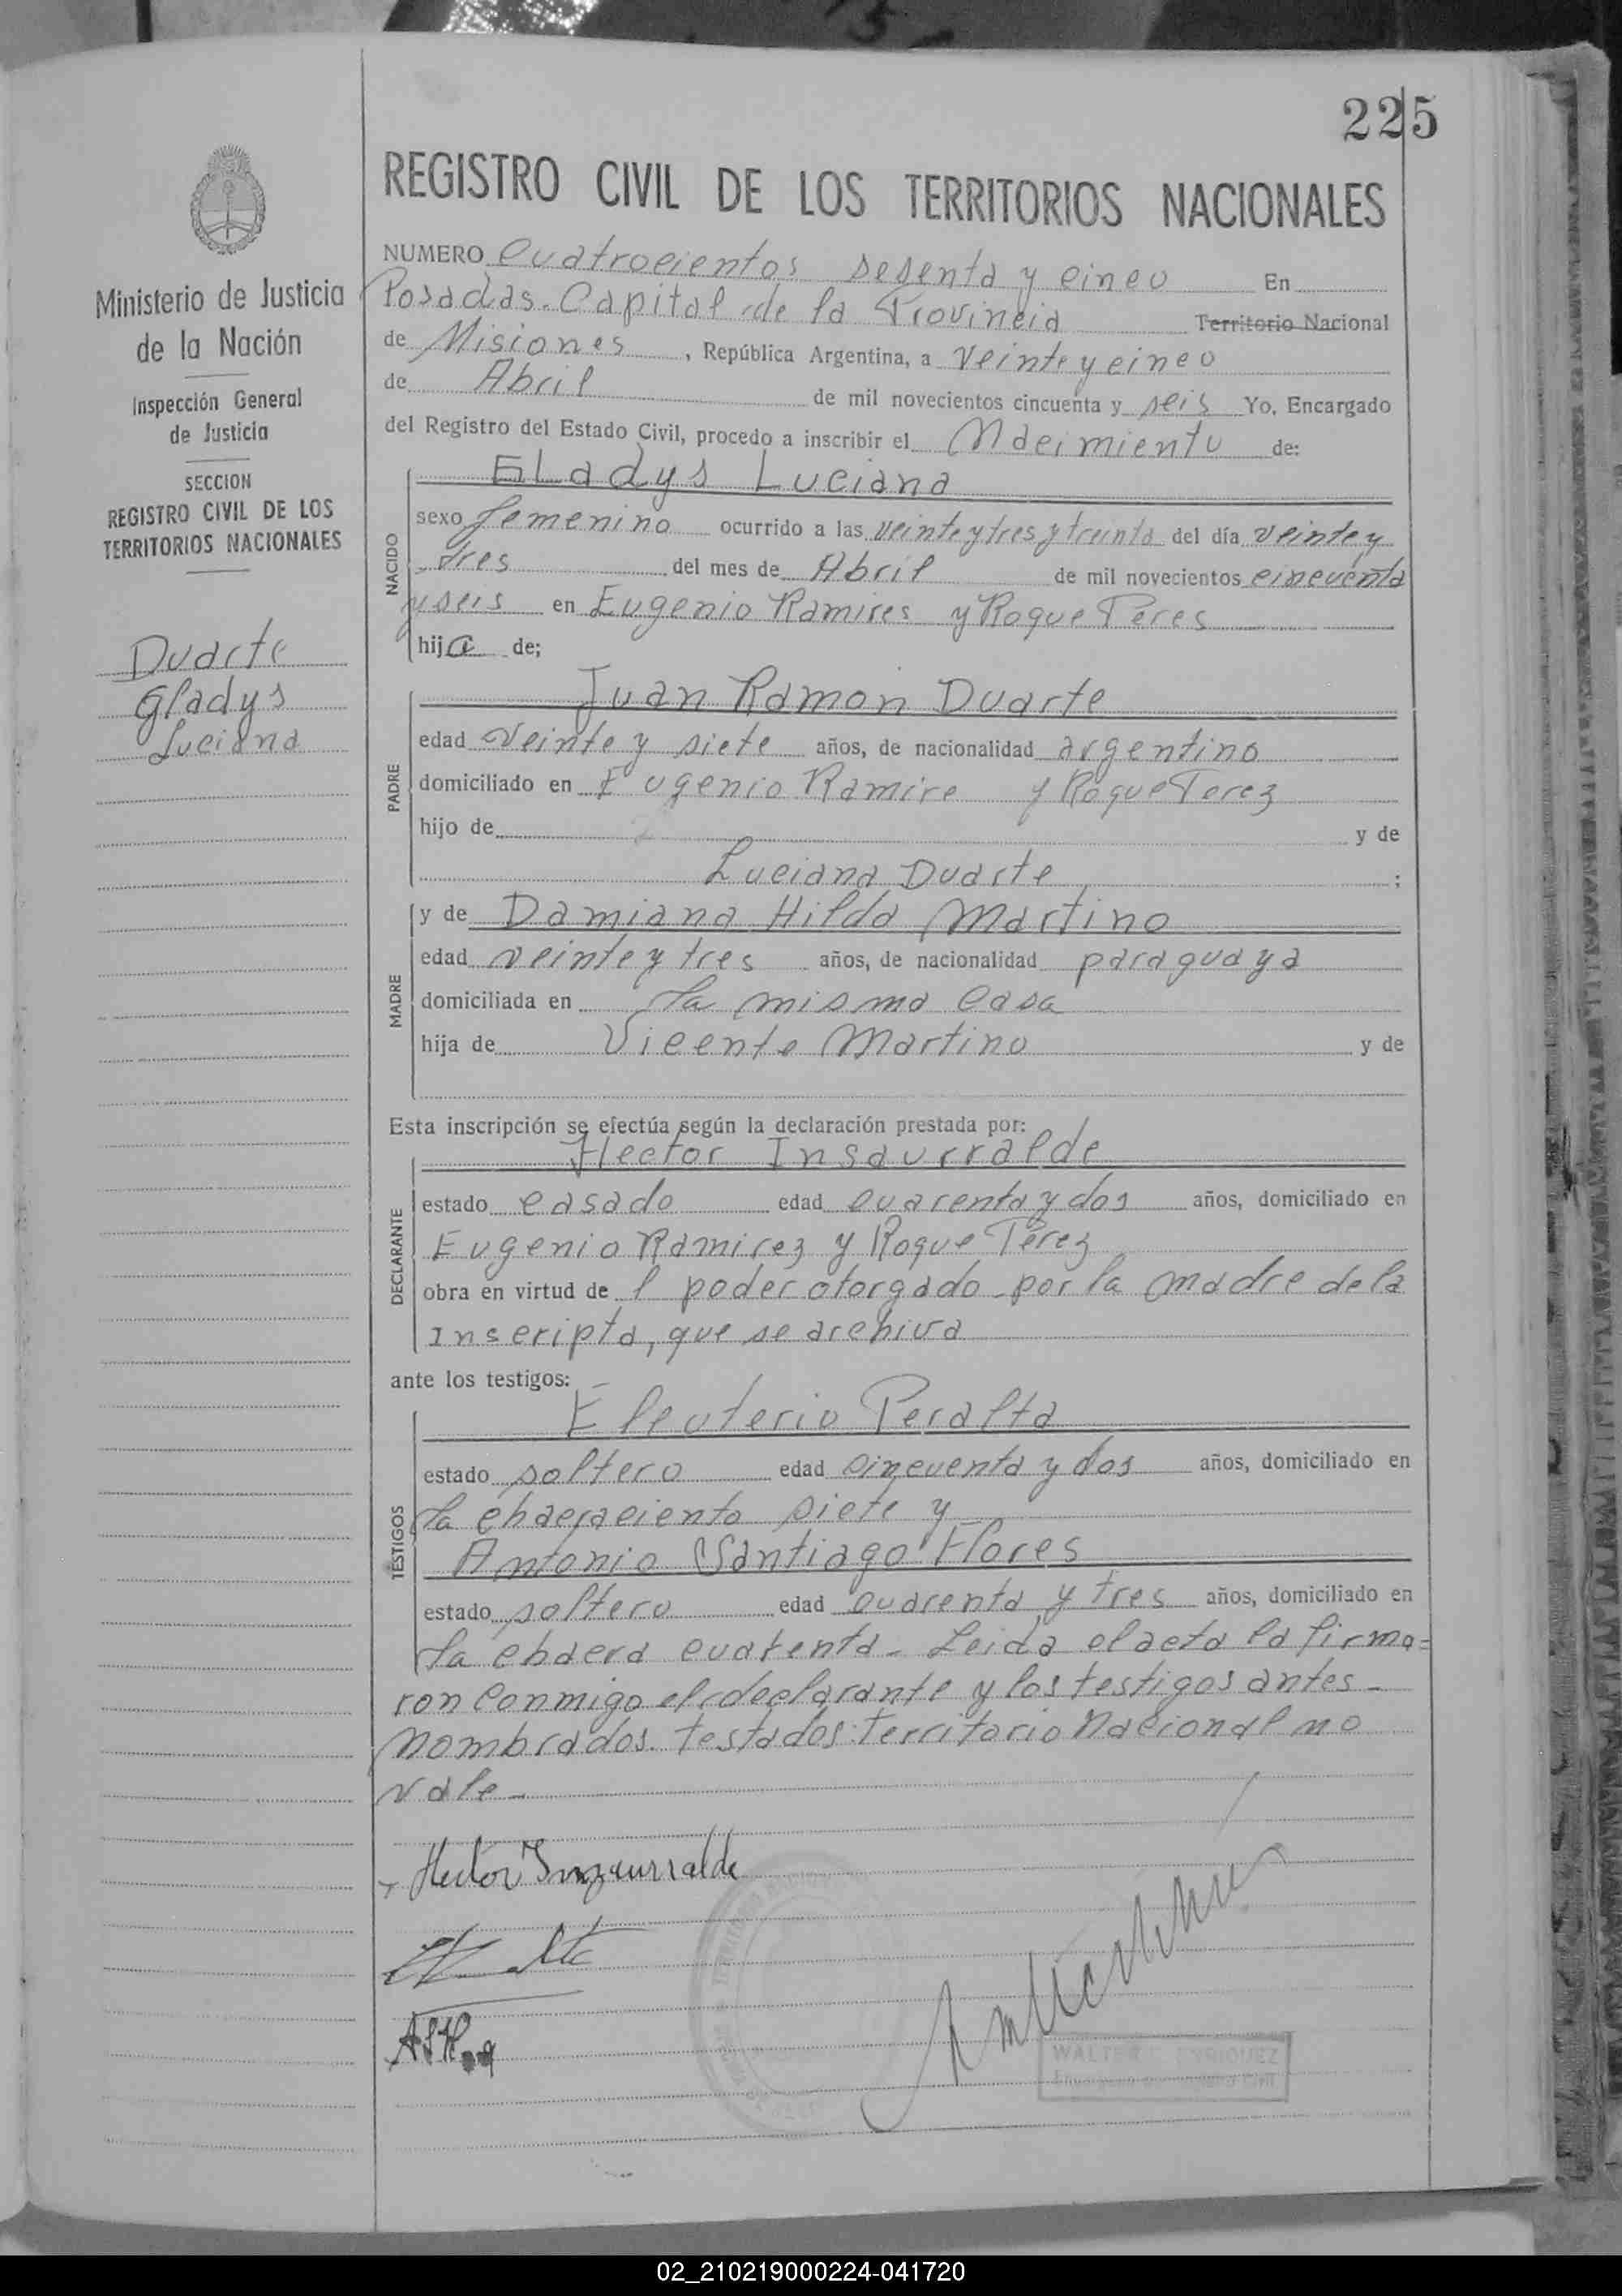 225
REGISTRO CIVIL DE LOS TERRITORIOS NACIONALES
NUMERO Cuatrocientos sesenta y cinco En
Posadas. Capital de la Provincia Territorio Nacional
de Misiones, República Argentina, a Veinte y cinco
de Abril de mil novecientos cincuenta y seis Yo, Encargado
del Registro del Estado Civil, procedo a inscribir el Nacimiento de:
NACIDO
GLadys Luciana
sexo femenino ocurrido a las veinte y tres y treinta del día veinte y
tres del mes de Abril de mil novecientos cincuenta
y seis en Eugenio Ramires y Roque Péres
hija de;
PADRE
Juan Ramon Duarte
edad Veinte y siete años, de nacionalidad argentino
domiciliado en Eugenio Ramire y Roque Perez
hijo de y de
Luciana Duarte ;
MADRE
y de Damiana Hilda Martino
edad veinte y tres años, de nacionalidad paraguaya
domiciliada en la misma casa
hija de Vicente Martino y de
Esta inscripción se efectúa según la declaración prestada por:
DECLARANTE
Hector Insaurralde
estado casado edad cuarenta y dos años, domiciliado en
Eugenio Ramirez y Roque Pérez
obra en virtud de l poder otorgado por la madre de la
inscripta, que se archiva
ante los testigos:
TESTIGOS
Eleuterio Peralta
estado soltero edad cincuenta y dos años, domiciliado en
la chacra ciento siete y
Antonio Santiago Flores
estado soltero edad cuarenta y tres años, domiciliado en
la chacra cuarenta - Leida el acta la firma=
ron conmigo el declarante y los testigos antes-
nombrados. Testados: Territorio Nacional no
vale -
Hector Inzaurralde
WALTER
Ministerio de Justicia
de la Nación
Inspección General
de Justicia
SECCION
REGISTRO CIVIL DE LOS
TERRITORIOS NACIONALES
Duarte
Gladys
Luciana
02_210219000224-041720